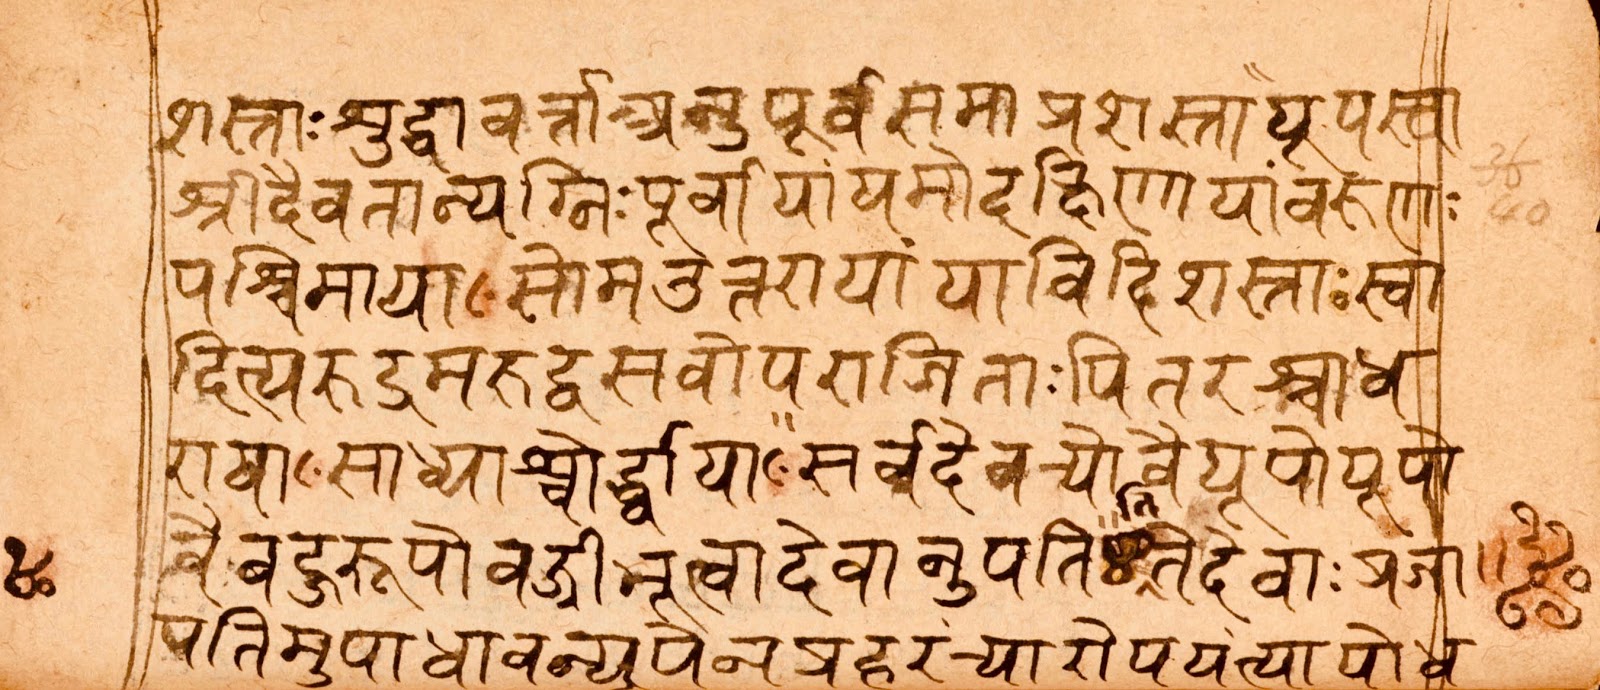 शस्ताः शुद्धावर्त्ताच्यनुपूर्वसमाप्रशस्तायूपस्त्वा
श्रीदैवतान्यग्निः पूर्वायां यमोदक्षिणायांवरुणः
पश्चिमाया सोमउत्तरायां याविदिशस्ताः स्वा
दित्यरुद्रमरुद्वसवोपराजिताः पितरश्चाध
राषा साध्याश्चोर्द्ध्वाया सर्वदेवत्योवैयूपोयूपो
वैबहुरूपोवज्रीभूत्वादेवानुपतितिष्ठतेदेवाः प्रजा॥
पतिमुपाधावन्यूपेन प्रहरंत्यारोपयंत्यापोव